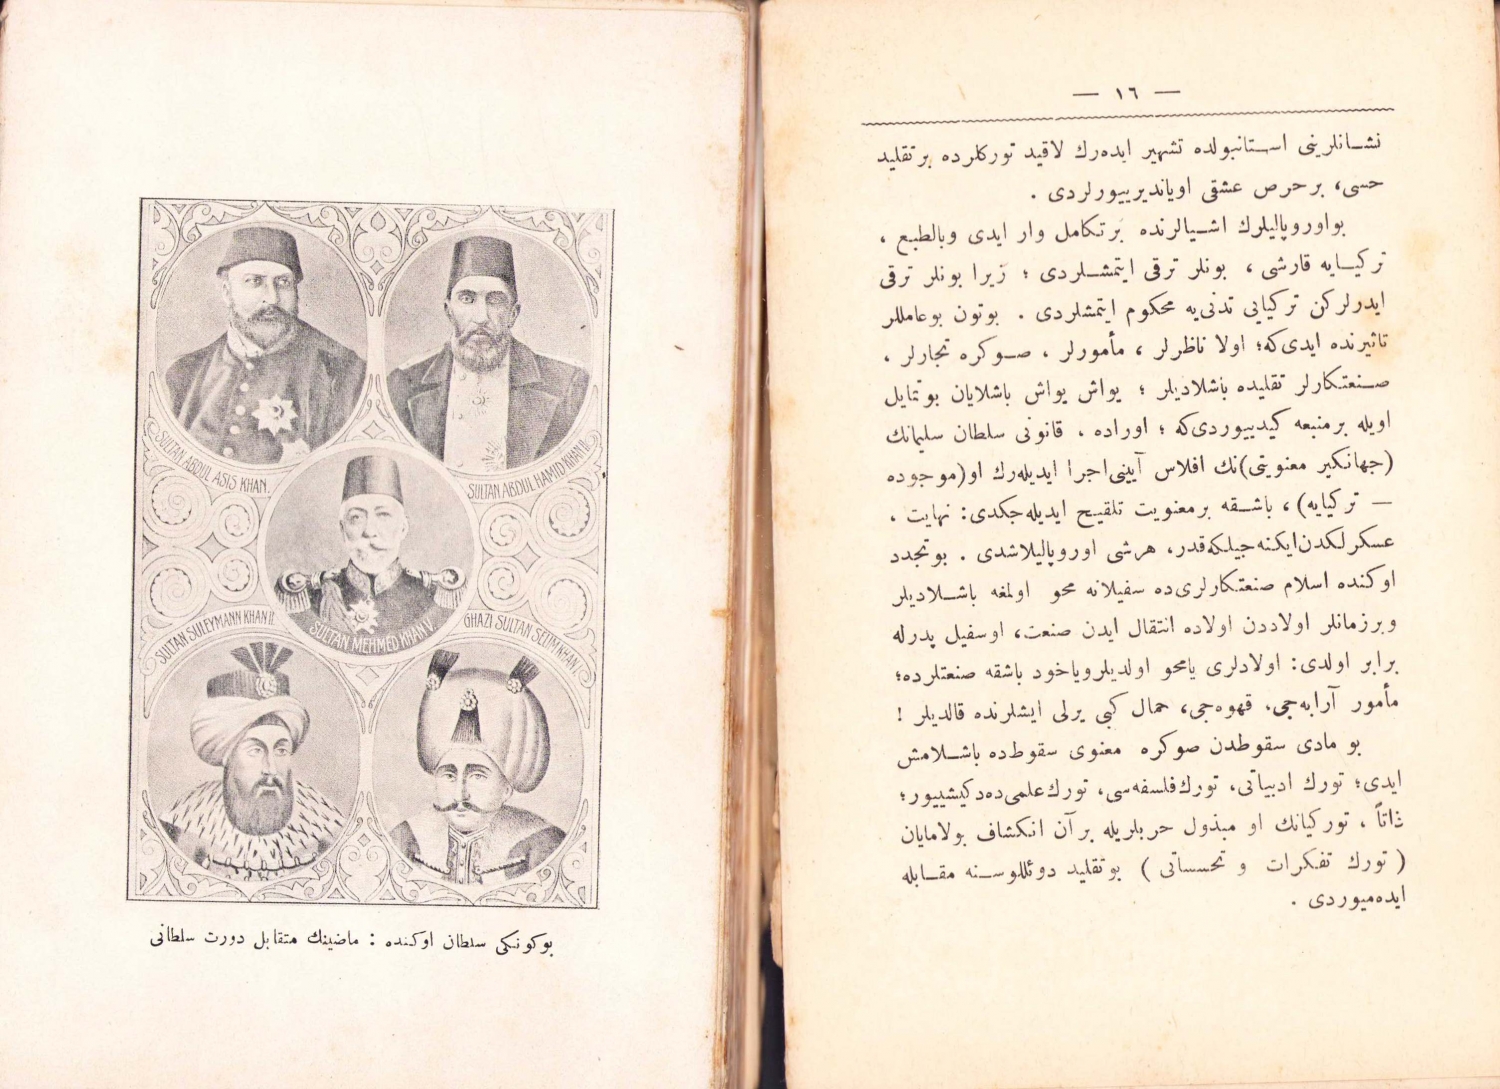 — ١٦ —
نشانلرینی استانبولده تشهیر ایده‌رك لاقید تورکلرده بر تقلید
حسی، بر حرص عشقی اویاندیرییورلردی .
بو اوروپالیلرك اشیالرنده بر تکامل وار ایدی وبالطبع ،
ترکیایه قارشی ، بونلر ترقی ایتمشلردی ؛ زیرا بونلر ترقی
ایدرلرکن ترکیایی تدنی‌یه محکوم ایتمشلردی . بوتون بو عامللر
تاثیرنده ایدی که؛ اولا ناظرلر ، مأمورلر ، صوکره تجارلر ،
صنعتکارلر تقلیده باشلادیلر ؛ یواش یواش باشلایان بو تمایل
اویله بر منبعه کیدییوردی که ؛ اوراده ، قانونی سلطان سلیمانك
(جهانکیر معنویتی)نك افلاس آیینی اجرا ایدیله‌رك او (موجوده
— ترکیایه) ، باشقه بر معنویت تلقیح ایدیله‌جکدی: نهایت ،
عسکرلکدن ایکنه‌جیلکه قدر، هرشی اوروپالیلاشدی . بو تجدد
اوکنده اسلام صنعتکارلری ده سفیلانه محو اولمغه باشلادیلر
وبرزمانلر اولاددن اولاده انتقال ایدن صنعت، اوسفیل پدرله
برابر اولدی: اولادلری یامحو اولدیلر ویاخود باشقه صنعتلرده؛
مأمور آرابه‌جی، قهوه‌جی، حمال کبی یرلی ایشلرنده قالدیلر !
بو مادی سقوطدن صوکره معنوی سقوط ده باشلامش
ایدی؛ تورك ادبیاتی، تورك فلسفه‌سی، تورك علمی ده دکیشییور؛
ذاتاً ، تورکیانك او مبذول حربلریله بر آن انکشاف بولامایان
( تورك تفکرات و تحسساتی ) بو تقلید دوئللوسنه مقابله
ایده‌میوردی .
SULTAN ABDUL ASIS KHAN.
SULTAN ABDUL HAMID KHAN II.
SULTAN MEHMED KHAN V
SULTAN SULEYMANN KHAN II.
GHAZI SULTAN SELIM KHAN I.
بوکونکی سلطان اوکنده : ماضینك متقابل دورت سلطانی